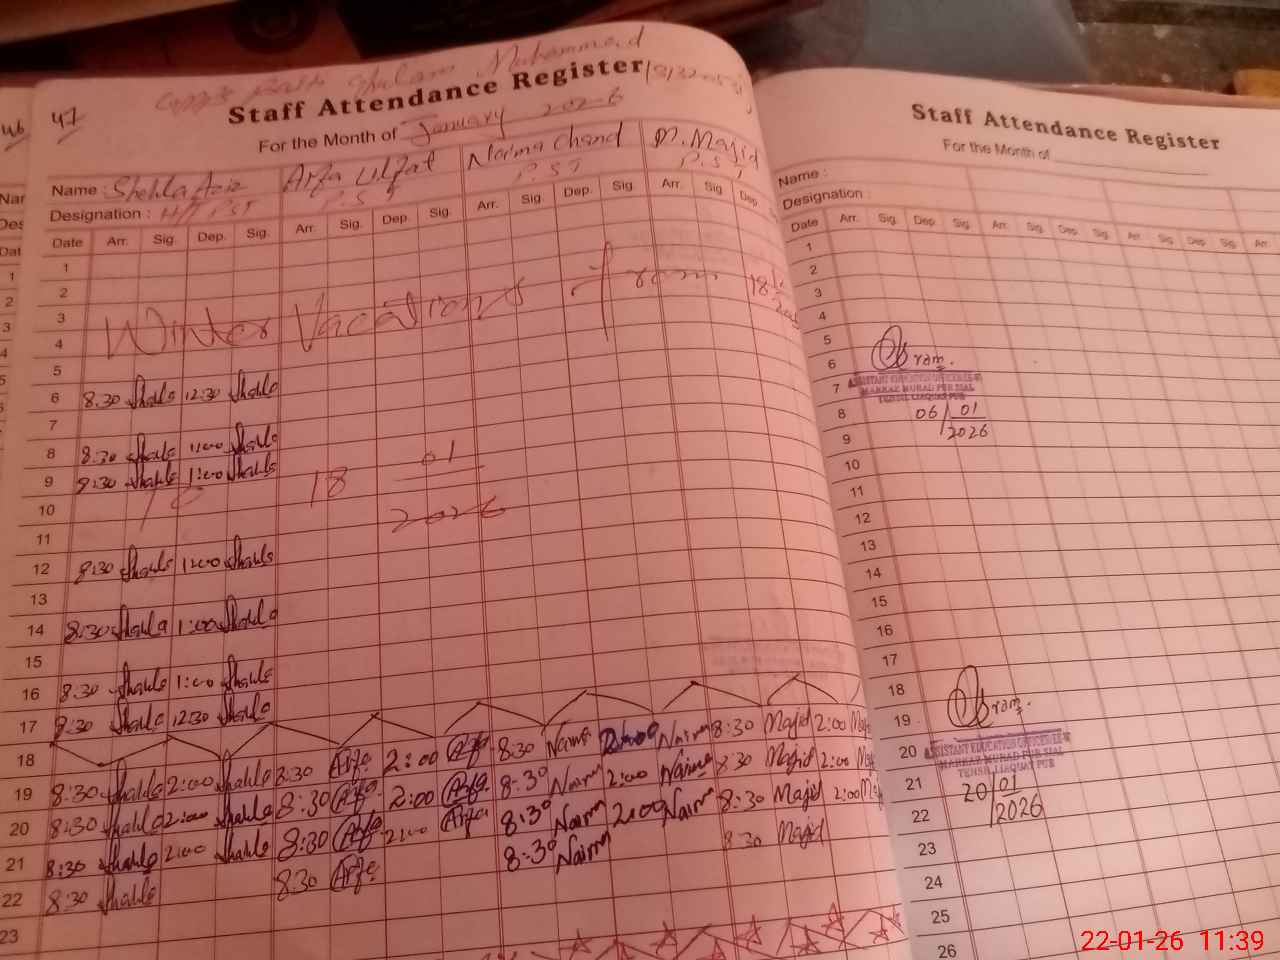 46 47
Ghulam Muhammad
Staff Attendance Register
For the Month of January 2026
Name : Shehla Aziz Arfa Ulfat Naima Chand M. Majid
Designation : H/T PST P.S.T P.ST P.S.T
Date Arr. Sig. Dep. Sig. Arr. Sig. Dep. Sig. Arr. Sig. Dep. Sig. Arr. Sig Dep.
1
2
3
4
Winter Vacations from 18
5
6 8:30 Shahla 12:30 Shahla
7
8 8:30 Shahla 1:00 Shahla
9 8:30 Shahla 1:00 Shahla
10
18 01 2026
11
12 8:30 Shahla 1:00 Shahla
13
14 8:30 Shahla 1:00 Shahla
15
16 8:30 Shahla 1:00 Shahla
17 8:30 Shahla 12:30 Shahla
18
19 8:30 Shahla 2:00 Shahla 8:30 Arfa 2:00 Arfa 8:30 Naima 2:00 Naima 8:30 Majid 2:00
20 8:30 Shahla 2:00 Shahla 8:30 Arfa 2:00 Arfa 8:30 Naima 2:00 Naima 8:30 Majid 2:00
21 8:30 Shahla 2:00 Shahla 8:30 Arfa 2:00 Arfa 8:30 Naima 2:00 Naima 8:30 Majid 2:00
22 8:30 Shahla 8:30 Arfa 8:30 Naima 8:30 Majid
23
Staff Attendance Register
For the Month of
Name :
Designation :
Date Arr. Sig. Dep. Sig. Arr. Sig. Dep. Sig. Arr. Sig. Dep. Sig. Arr.
1
2
3
4
5
6
7
ASSISTANT EDUCATION OFFICER
MARKAZ MURAD PUR SIAL
TEHSIL LIAQUAT PUR
8 06/01/2026
9
10
11
12
13
14
15
16
17
18
19
20
ASSISTANT EDUCATION OFFICER
MARKAZ MURAD PUR SIAL
TEHSIL LIAQUAT PUR
21 20/01/2026
22
23
24
25
26
22-01-26 11:39